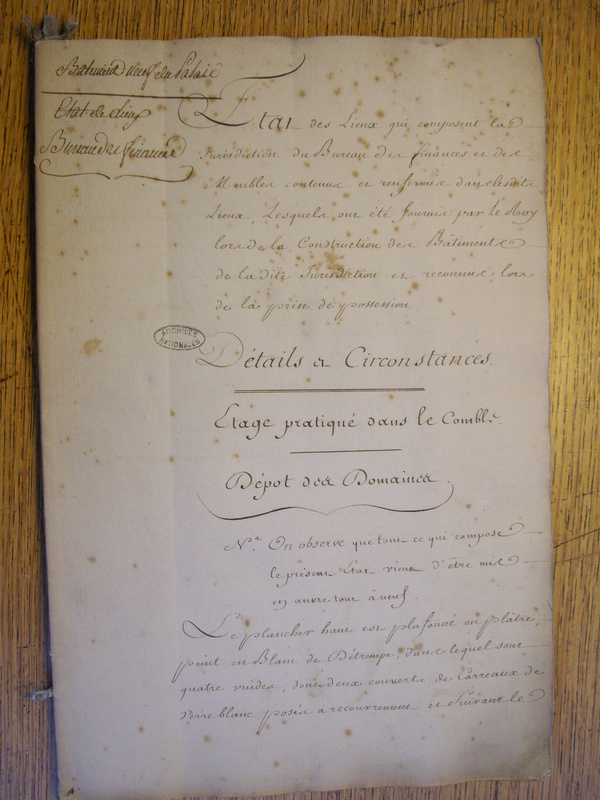 Batiment neuf du Palais
Etat de lieux
Bureau des finances
Etat des Lieux qui composent la
Jurisdiction du Bureau des finances et des
Meubles contenus et renfermés dans lesdits
Lieux, Lesquels ont été fournis par le Roy
lors de la Construction des Bâtiments
de ladite Jurisdiction et reconnus lors
de la prise de possession
ARCHIVES
NATIONALES
Détails et Circonstances.
Etage pratiqué dans le Comble.
Dépot des Domaines.
Na. On observe que tout ce qui compose
le présent Etat vient d'être mis
en œuvre tout à neuf.
Le plancher haut est plafonné en plâtre,
peint en Blanc de Détrempe, dans lequel sont
quatre vuides, dont deux couverts de Carreaux de
Verre blanc posés a recouvrement et Suivant le